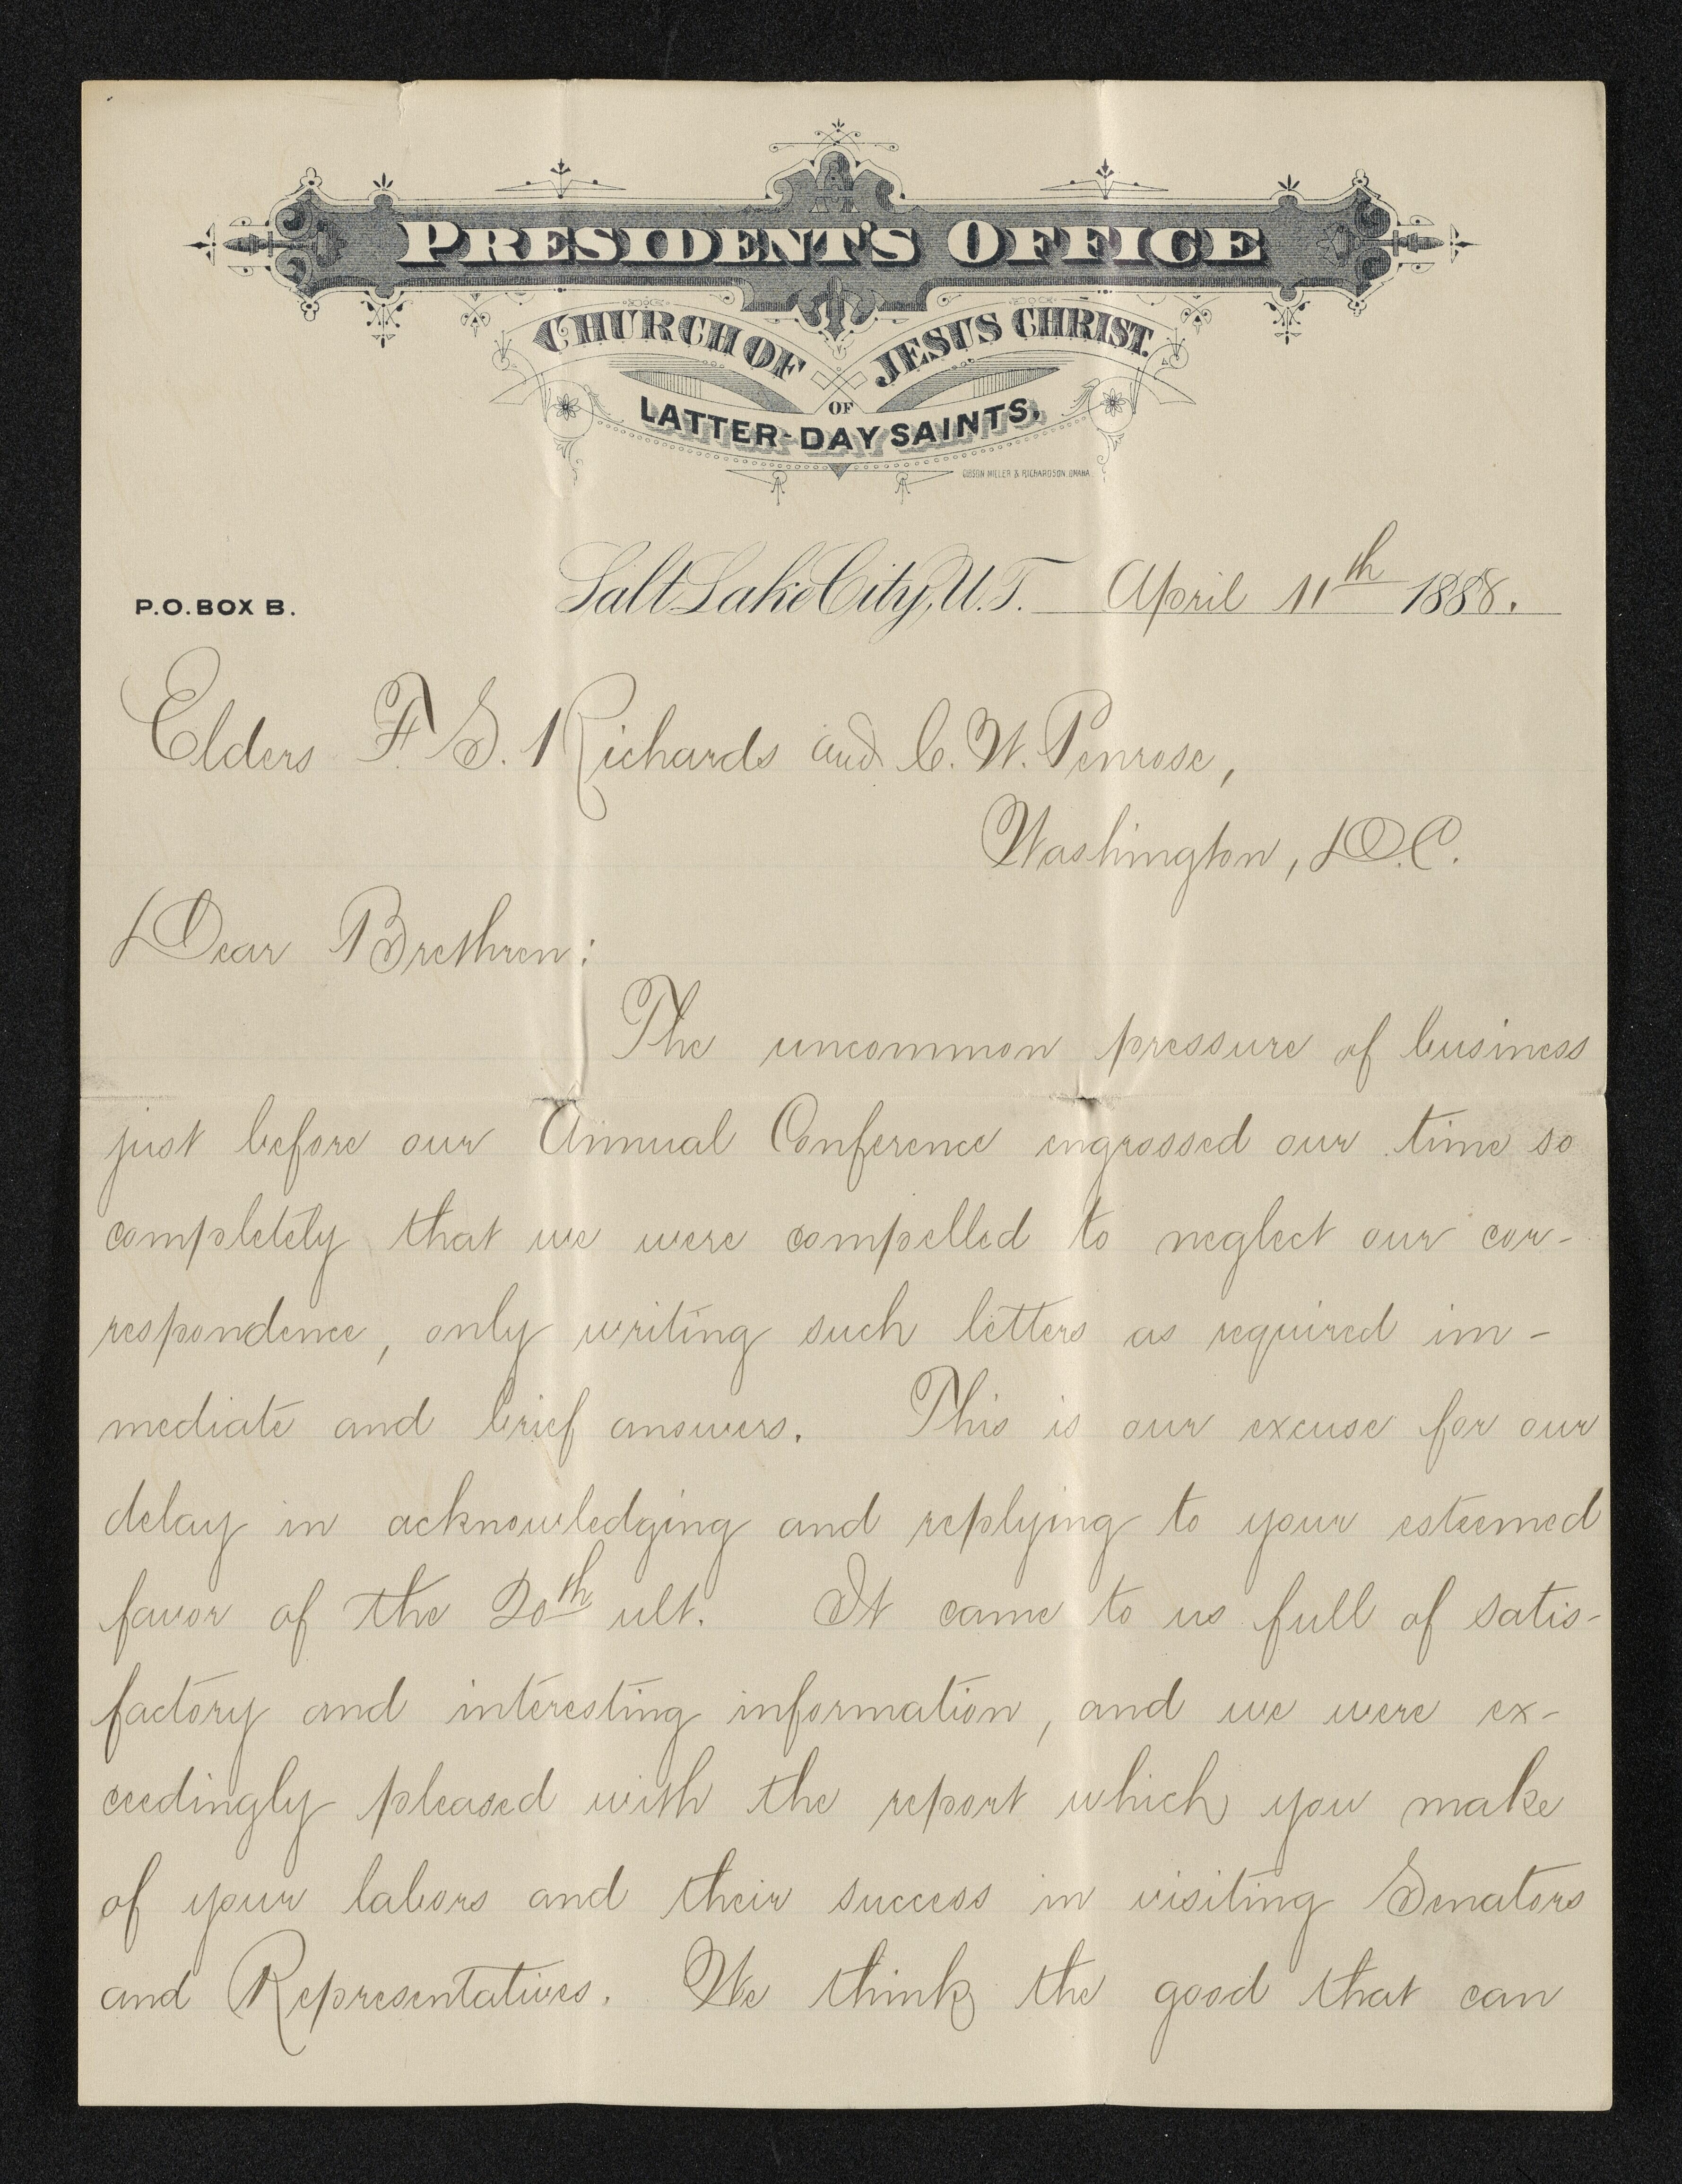 PRESIDENT'S OFFICE
CHURCH OF JESUS CHRIST
OF
LATTER-DAY SAINTS.
GIBSON MILLER & RICHARDSON. OMAHA
P.O. BOX B.
Salt Lake City, U.T. April 11th 1888.
Elders F. S. Richards and C. W. Penrose,
Washington, D.C.
Dear Brethren:
The uncommon pressure of business
just before our Annual Conference engrossed our time so
completely that we were compelled to neglect our cor-
respondence, only writing such letters as required im-
mediate and brief answers. This is our excuse for our
delay in acknowledging and replying to your esteemed
favor of the 20th ult. It came to us full of satis-
factory and interesting information, and we were ex-
ceedingly pleased with the report which you make
of your labors and their success in visiting Senators
and Representatives. We think the good that can